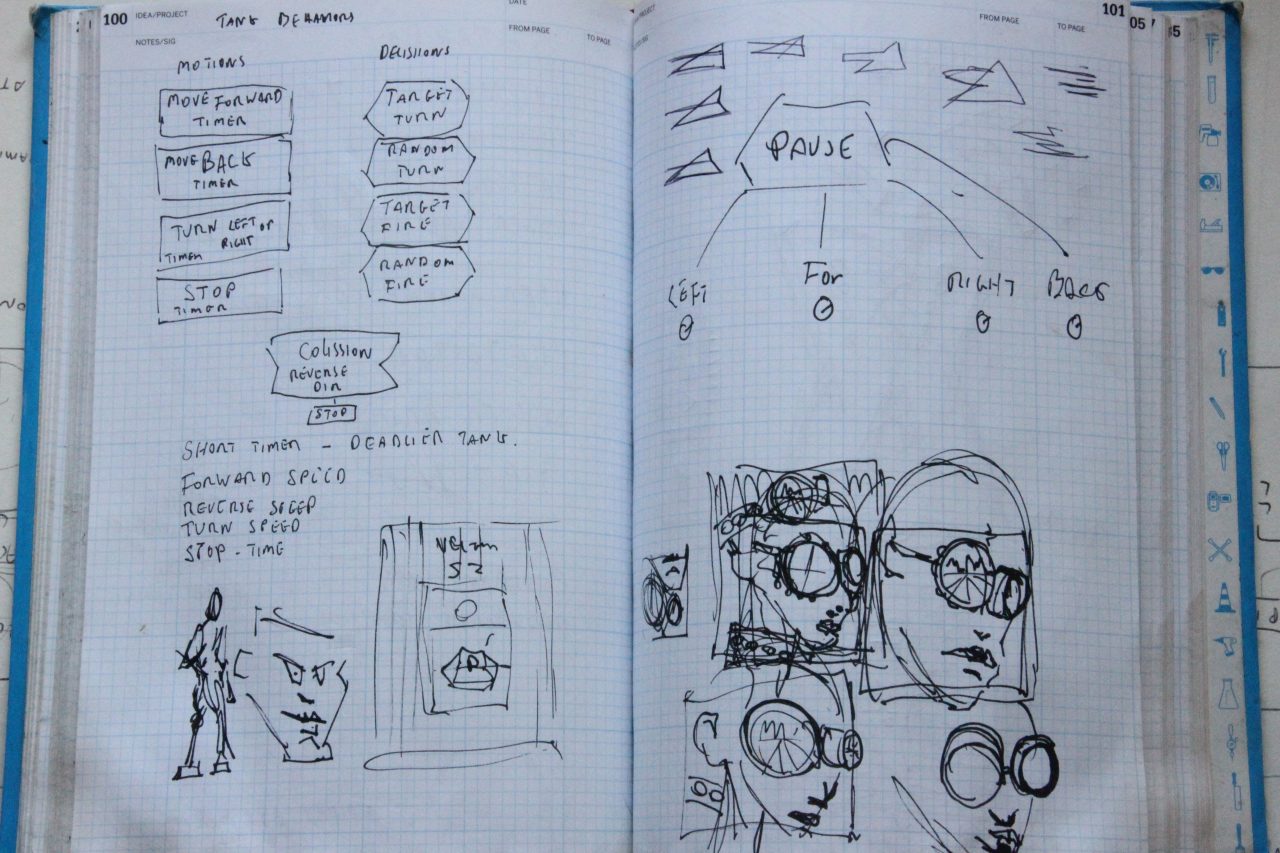 100 IDEA/PROJECT TANK BEHAVIORS
DATE
NOTES/SIG
FROM PAGE
TO PAGE
MOTIONS
MOVE FORWARD
TIMER
MOVE BACK
TIMER
TURN LEFT OR
RIGHT
TIMER
STOP
TIMER
DECISIONS
TARGET
TURN
RANDOM
TURN
TARGET
FIRE
RANDOM
FIRE
COLISSION
REVERSE
DIR
STOP
SHORT TIMER - DEADLIER TANK.
FORWARD SPEED
REVERSE SPEED
TURN SPEED
STOP-TIME
/PROJECT
FROM PAGE
TO PAGE
101
05
PAUSE
LEFT
FOR
RIGHT
BACK